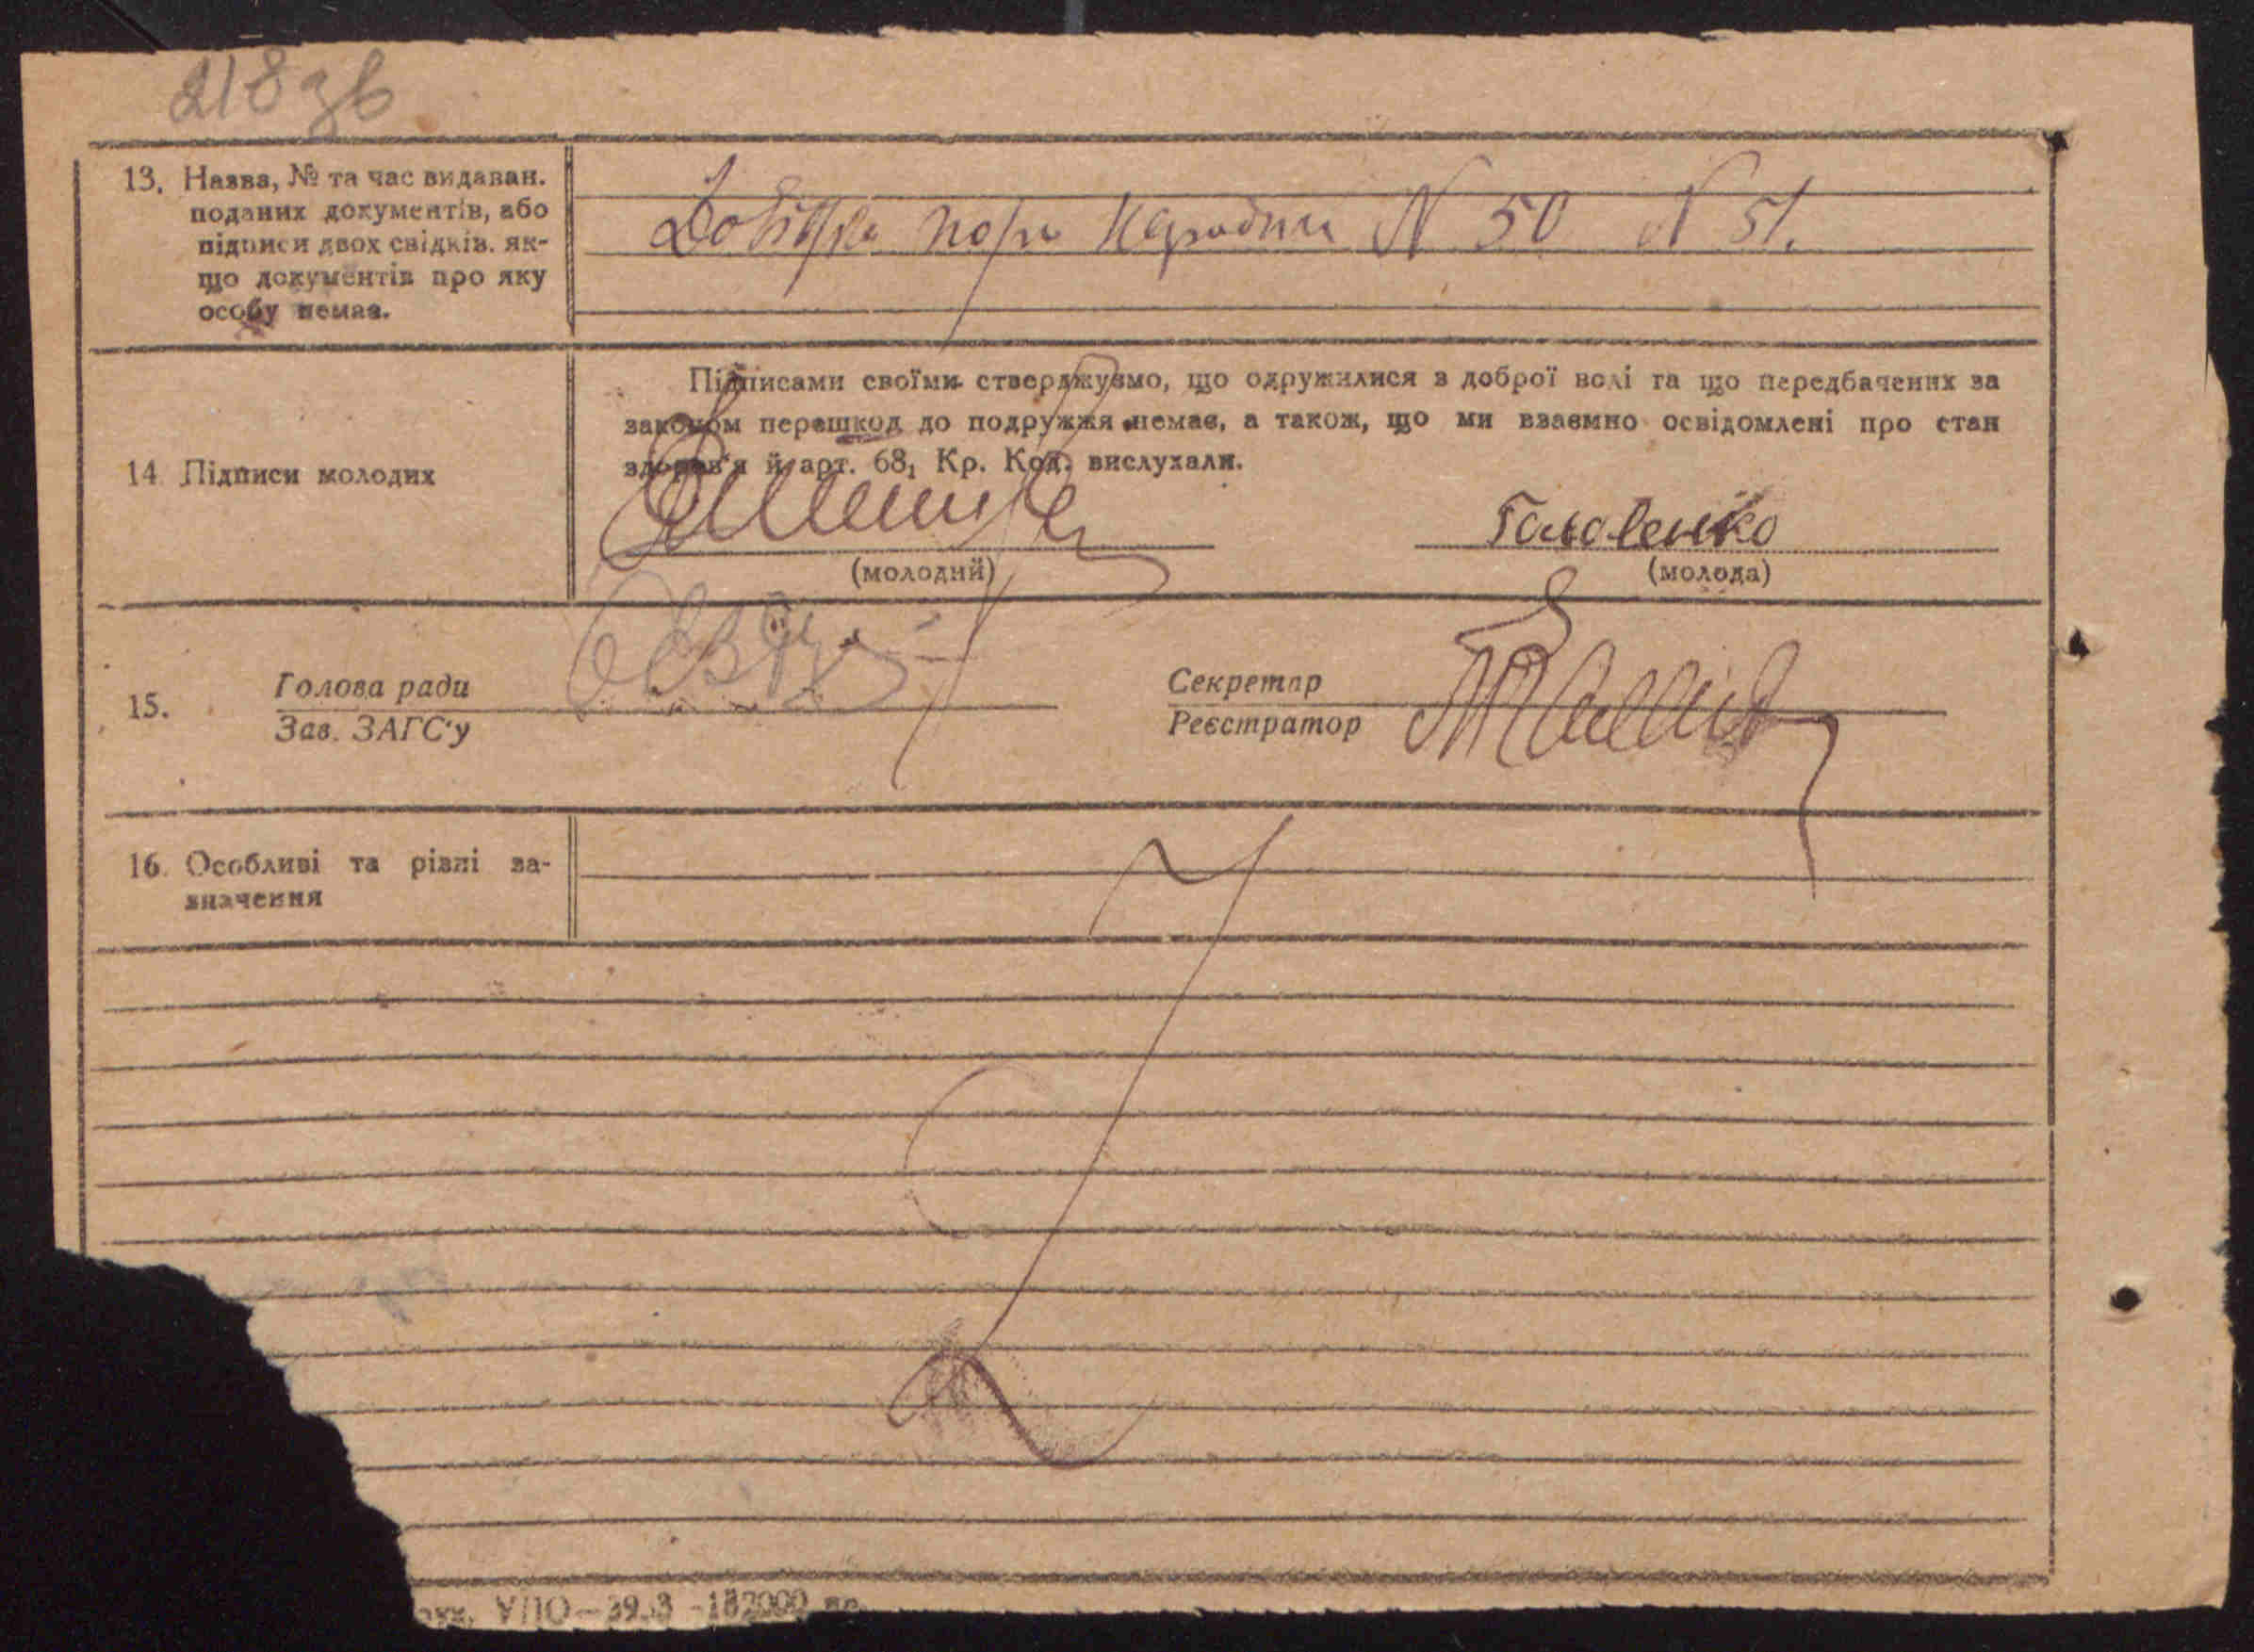 218 зв
13. Назва, № та час видаван.
поданих документів, або
підписи двох свідків. як-
що документів про яку
особу немає.
Довідка про народжен N 50 N 51.
14 Підписи молодих
Підписами своїми стверджуємо, що одружилися з доброї волі та що передбачених за
законом перешкод до подружжя немає, а також, що ми взаємно освідомлені про стан
здоров'я й арт. 68, Кр. Код. вислухали.
Головенко
(молодий)
(молода)
15.
Голова ради
Зав. ЗАГС'у
Секретар
Реєстратор
16. Особливі та різні за-
значення
УПО—39.3 -182000